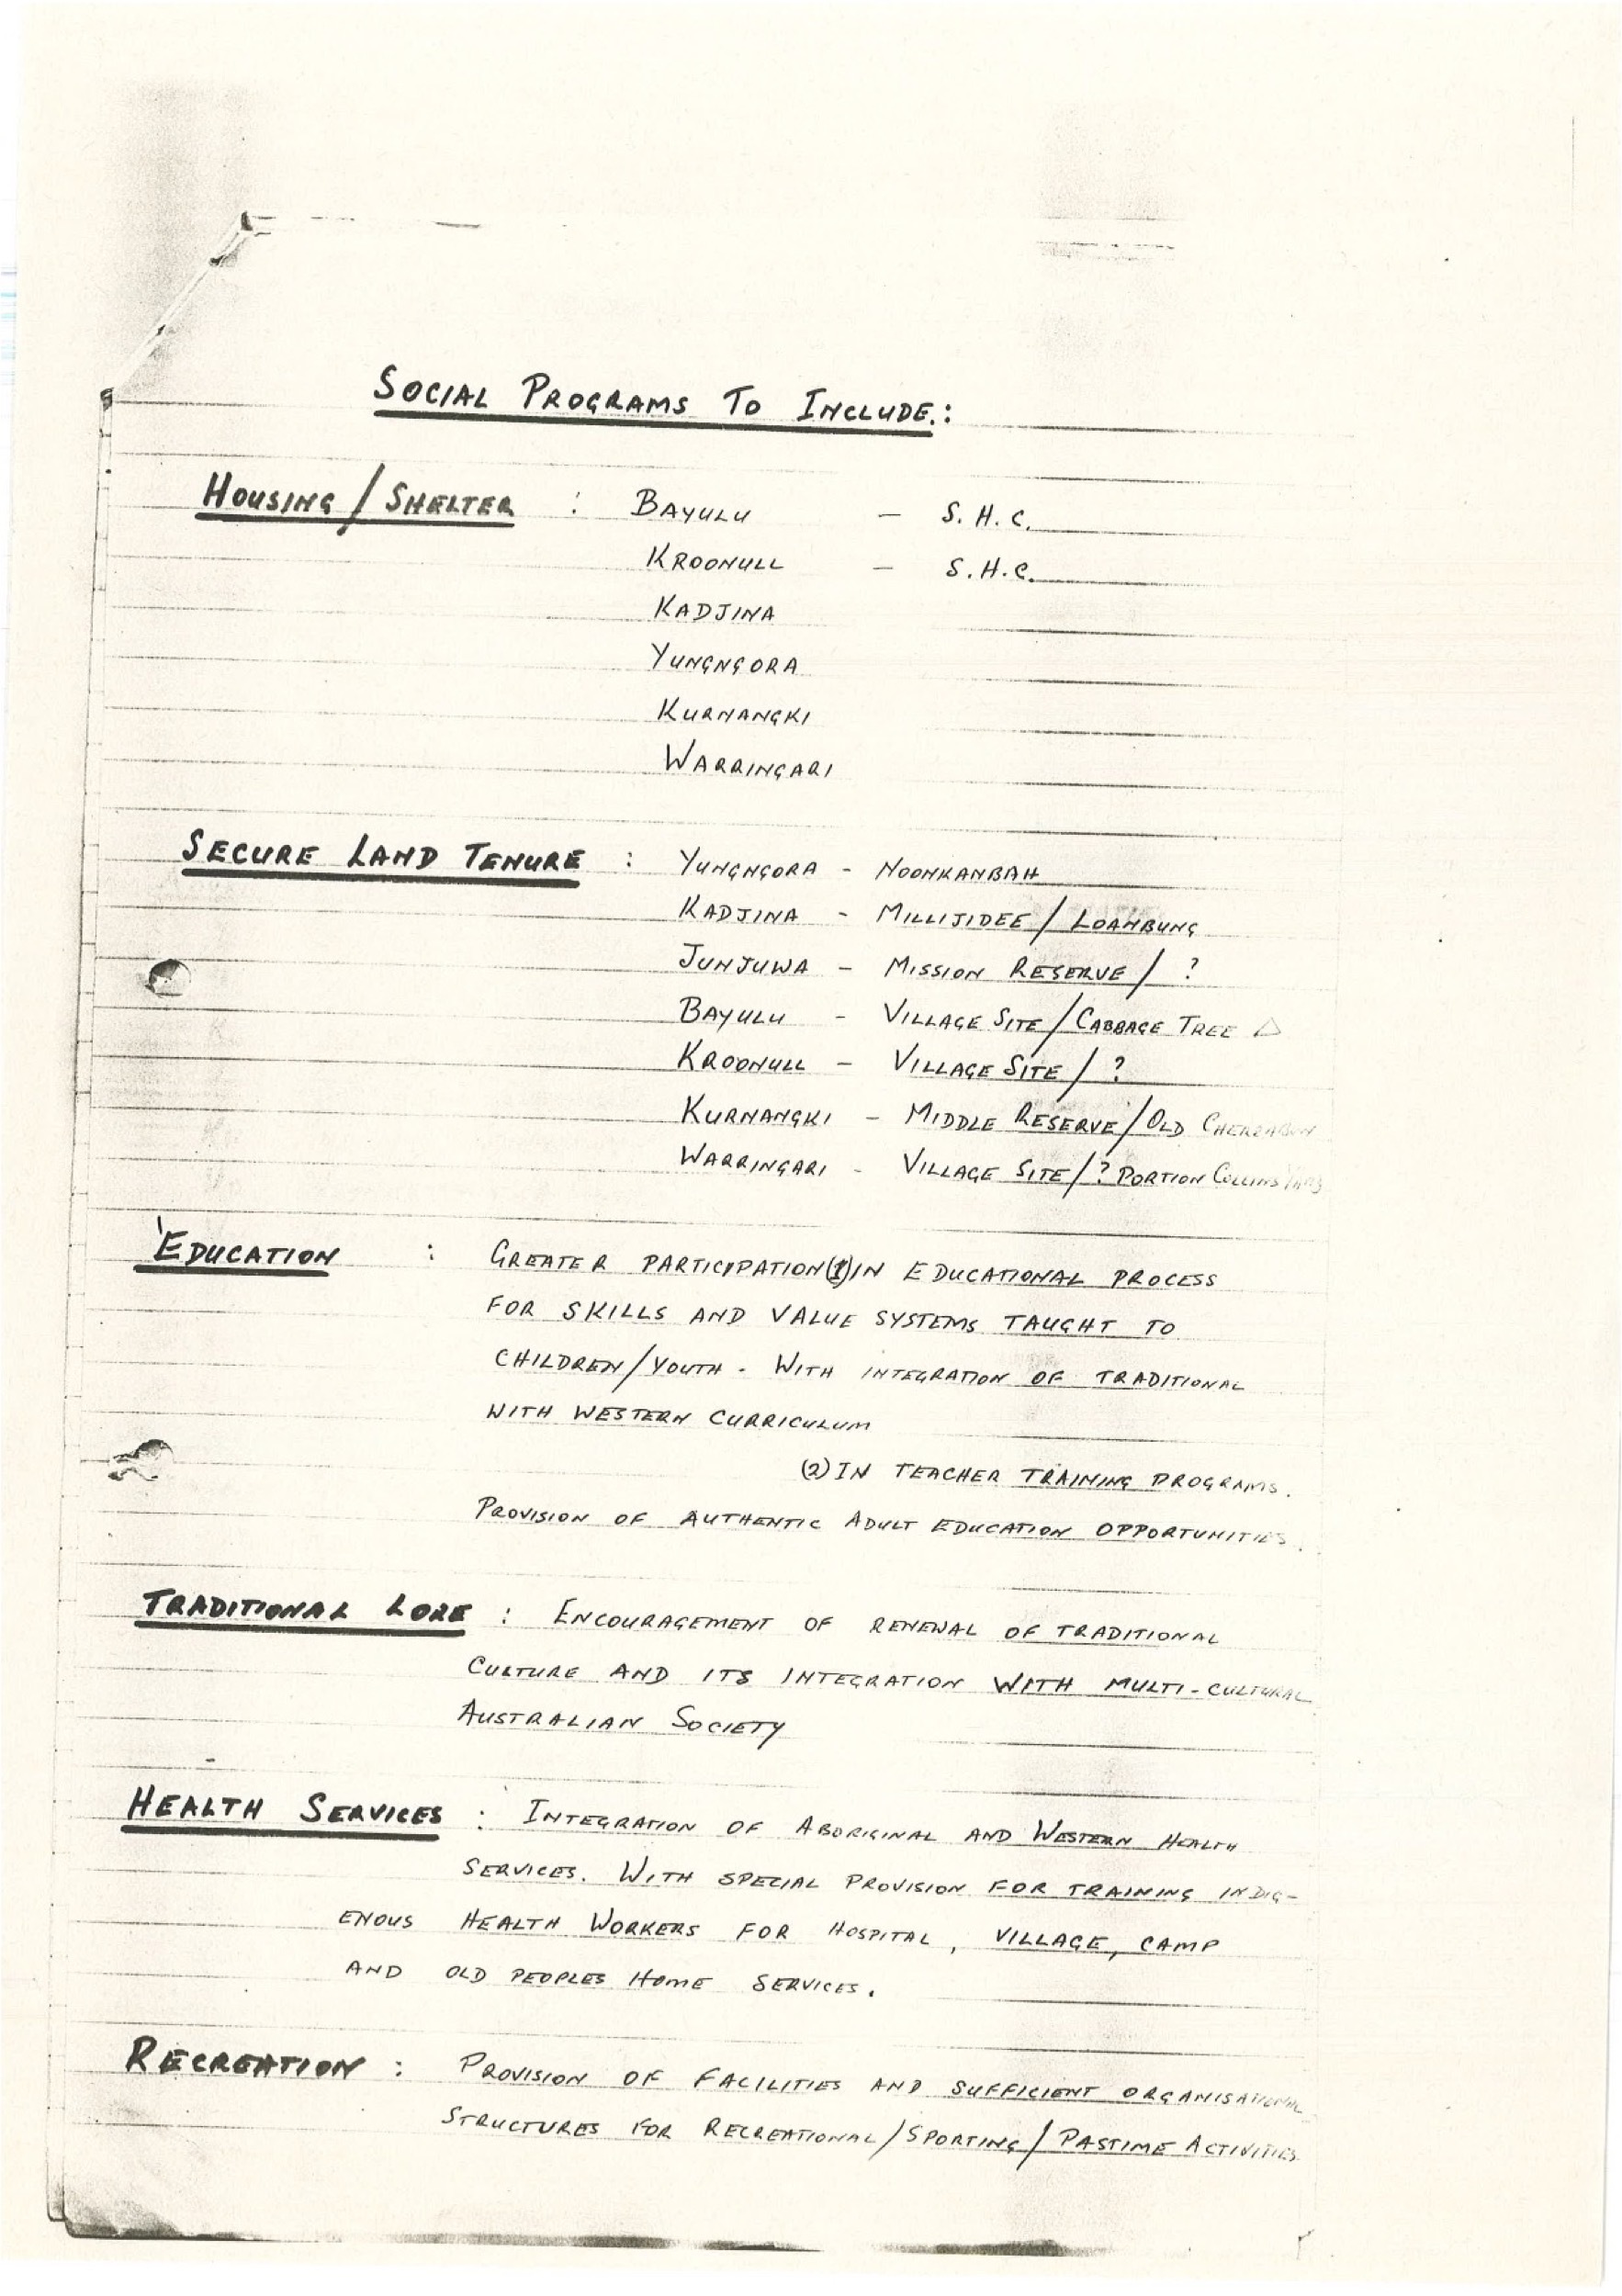 SOCIAL PROGRAMS TO INCLUDE.:
HOUSING / SHELTER : BAYULU - S.H.C.
KROONULL - S.H.C.
KADJINA
YUNGNGORA
KURNANGKI
WARRINGARI
SECURE LAND TENURE : YUNGNGORA - NOONKANBAH
KADJINA - MILLIJIDEE / LOANBUNG
JUNJUWA - MISSION RESERVE / ?
BAYULU - VILLAGE SITE / CABBAGE TREE △
KROONULL - VILLAGE SITE / ?
KURNANGKI - MIDDLE RESERVE / OLD
WARRINGARI - VILLAGE SITE / ? PORTION COLLINS
EDUCATION : GREATER PARTICIPATION (1) IN EDUCATIONAL PROCESS
FOR SKILLS AND VALUE SYSTEMS TAUGHT TO
CHILDREN / YOUTH - WITH INTEGRATION OF TRADITIONAL
WITH WESTERN CURRICULUM
(2) IN TEACHER TRAINING PROGRAMS.
PROVISION OF AUTHENTIC ADULT EDUCATION OPPORTUNITIES.
TRADITIONAL LORE : ENCOURAGEMENT OF RENEWAL OF TRADITIONAL
CULTURE AND ITS INTEGRATION WITH MULTI-CULTURAL
AUSTRALIAN SOCIETY
HEALTH SERVICES : INTEGRATION OF ABORIGINAL AND WESTERN HEALTH
SERVICES. WITH SPECIAL PROVISION FOR TRAINING INDIG-
ENOUS HEALTH WORKERS FOR HOSPITAL, VILLAGE, CAMP
AND OLD PEOPLES HOME SERVICES.
RECREATION : PROVISION OF FACILITIES AND SUFFICIENT ORGANISATIONAL
STRUCTURES FOR RECREATIONAL / SPORTING / PASTIME ACTIVITIES